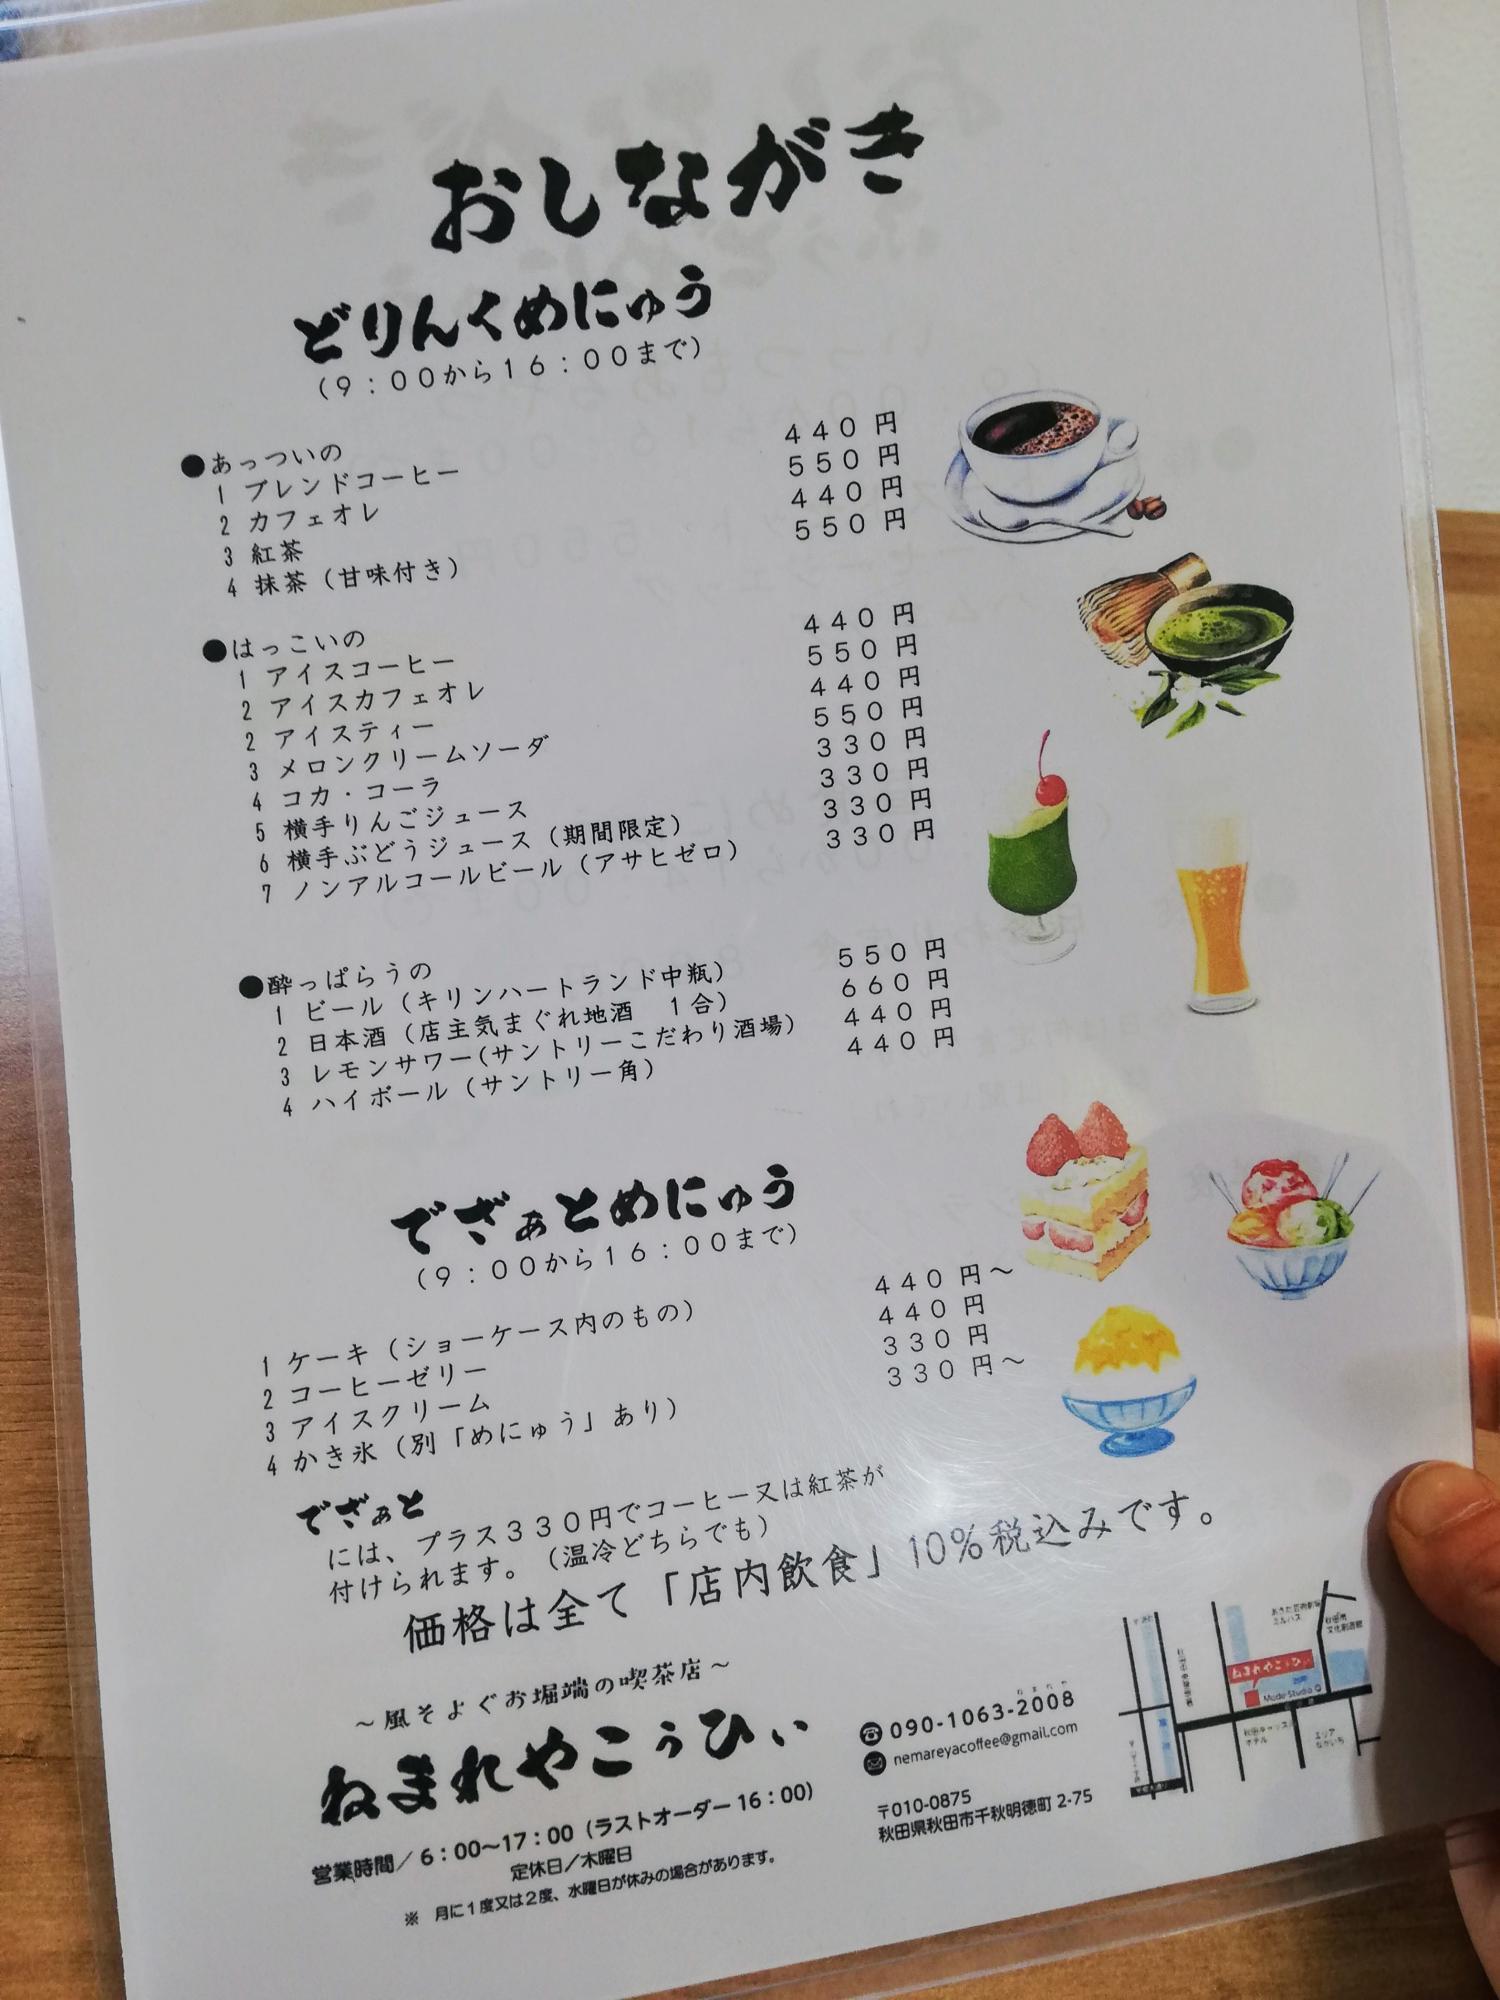 おしながき
どりんくめにゅう
（9：00から16：00まで）
●あっついの
1 ブレンドコーヒー 440円
2 カフェオレ 550円
3 紅茶 440円
4 抹茶（甘味付き） 550円
●はっこいの
1 アイスコーヒー 440円
2 アイスカフェオレ 550円
2 アイスティー 440円
3 メロンクリームソーダ 550円
4 コカ・コーラ 330円
5 横手りんごジュース 330円
6 横手ぶどうジュース（期間限定） 330円
7 ノンアルコールビール（アサヒゼロ） 330円
●酔っぱらうの
1 ビール（キリンハートランド中瓶） 550円
2 日本酒（店主気まぐれ地酒　1合） 660円
3 レモンサワー(サントリーこだわり酒場） 440円
4 ハイボール（サントリー角） 440円
でざぁとめにゅう
（9：00から16：00まで）
1 ケーキ（ショーケース内のもの） 440円～
2 コーヒーゼリー 440円
3 アイスクリーム 330円
4 かき氷（別「めにゅう」あり） 330円～
でざぁと
には、プラス330円でコーヒー又は紅茶が
付けられます。（温冷どちらでも）
価格は全て「店内飲食」10%税込みです。
～風そよぐお堀端の喫茶店～
ねまれやこぅひぃ
営業時間／6：00～17：00（ラストオーダー16：00）
定休日／木曜日
※　月に1度又は2度、水曜日が休みの場合があります。
ねまれや
090-1063-2008
nemareyacoffee@gmail.com
〒010-0875
秋田県秋田市千秋明徳町2-75
あきた芸術劇場
ミルハス
秋田市
文化創造館
ねまれやこぅひぃ
Mode Studio Q
秋田キャッスル
ホテル
エリア
なかいち